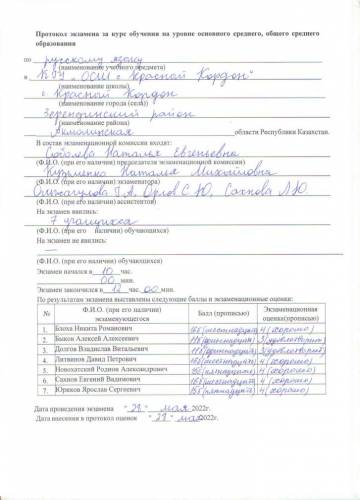 Протокол экзамена за курс обучения на уровне основного среднего, общего среднего
образования
по русскому языку
(наименование учебного предмета)
в КГУ "ОСШ с. Красной Кордон"
(наименование школы)
с. Красной Кордон
(наименование города (села))
Зерендинский район
(наименование района)
Акмолинская области Республики Казахстан.
В состав экзаменационной комиссии входят:
Соболева Наталья Евгеньевна
(Ф.И.О. (при его наличии) председателя экзаменационной комиссии)
Наталья Михайловна
(Ф.И.О. (при его наличии) экзаменатора)
Орлов С.Ю,
(Ф.И.О. (при его наличии) ассистентов)
На экзамен явились:
7 учащихся
(Ф.И.О. (при его наличии) обучающихся)
На экзамен не явились:
—
(Ф.И.О. (при его наличии) обучающихся)
Экзамен начался в 10 час.
00 мин.
Экзамен закончился в 12 час. 00 мин.
По результатам экзамена выставлены следующие баллы и экзаменационные оценки:
№ Ф.И.О. (при его наличии) экзаменующегося Балл (прописью) Экзаменационная оценка(прописью)
1. Блоха Никита Романович 16б(шестнадцать) 4 (хорошо)
2. Быков Алексей Алексеевич 3(удовлетворит)
3. Долгов Владислав Витальевич 3(удовлетворит)
4. Литвинов Давид Петрович 16б(шестнадцать) 4 (хорошо)
5. Новохатский Родион Александрович (пятнадцать) 4 (хорошо)
6. Сахнов Евгений Вадимович 16б(шестнадцать) 4 (хорошо)
7. Юриков Ярослав Сергеевич 15б(пятнадцать) 4 (хорошо)
Дата проведения экзамена "28" мая 2022г.
Дата внесения в протокол оценок "28" мая 2022г.